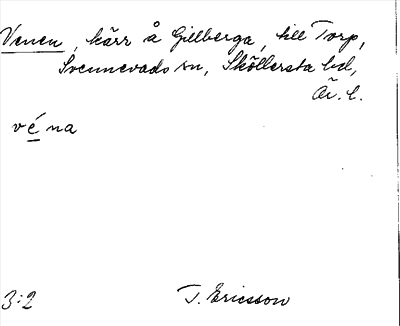 Venen, kärr å Gillberga, till Torp,
Svennevads sn, Sköllersta hd,
Ä. l.
véna
3:2 T. Ericsson